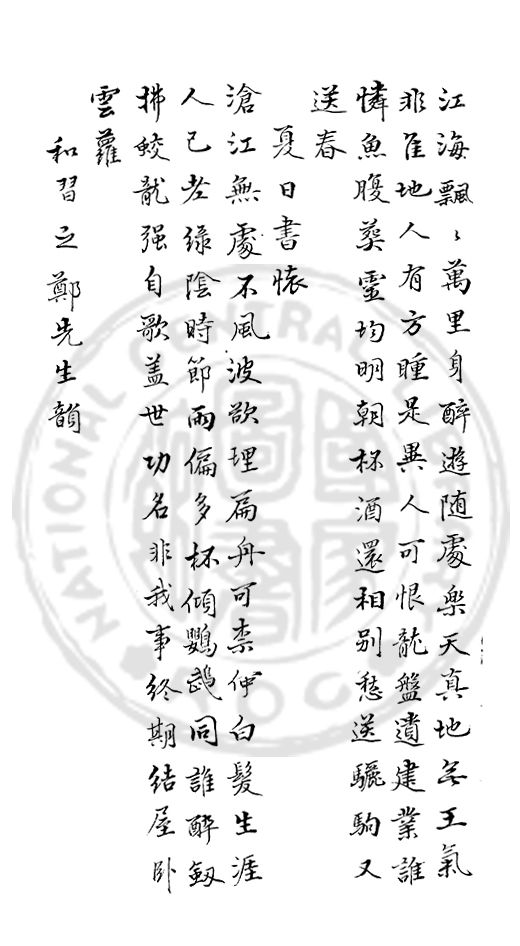 江海飄〻萬里身醉遊随處樂天真地無王氣
非隹地人有方瞳是異人可恨龍盤遺建業誰
憐魚腹葬靈均明朝杯酒還相别愁送驪駒又
送春
夏日書懷
滄江無處不風波欲理扁舟可柰何白髮生涯
人已老緑陰時節雨偏多杯傾鸚鵡同誰醉劔
拂蛟龍强自歌盖世功名非我事終期結屋卧
雲蘿
和習之鄭先生韻
NATIONAL CENTRAL